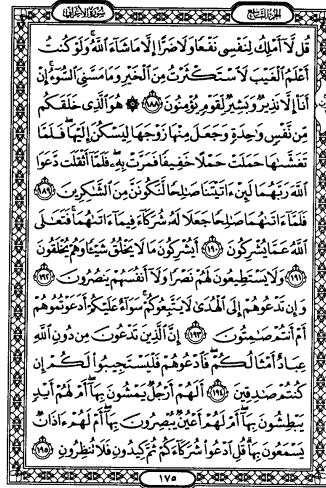 الجزء التاسع
سورة الأعراف
قُل لَّآ أَمْلِكُ لِنَفْسِى نَفْعًا وَلَا ضَرًّا إِلَّا مَا شَآءَ ٱللَّهُ وَلَوْ كُنتُ
أَعْلَمُ ٱلْغَيْبَ لَٱسْتَكْثَرْتُ مِنَ ٱلْخَيْرِ وَمَا مَسَّنِىَ ٱلسُّوٓءُ إِنْ
أَنَا۠ إِلَّا نَذِيرٌ وَبَشِيرٌ لِّقَوْمٍ يُؤْمِنُونَ ١٨٨ ۞ هُوَ ٱلَّذِى خَلَقَكُم
مِّن نَّفْسٍ وَٰحِدَةٍ وَجَعَلَ مِنْهَا زَوْجَهَا لِيَسْكُنَ إِلَيْهَا فَلَمَّا
تَغَشَّىٰهَا حَمَلَتْ حَمْلًا خَفِيفًا فَمَرَّتْ بِهِۦ فَلَمَّآ أَثْقَلَت دَّعَوَا
ٱللَّهَ رَبَّهُمَا لَئِنْ ءَاتَيْتَنَا صَٰلِحًا لَّنَكُونَنَّ مِنَ ٱلشَّٰكِرِينَ ١٨٩
فَلَمَّآ ءَاتَىٰهُمَا صَٰلِحًا جَعَلَا لَهُۥ شُرَكَآءَ فِيمَآ ءَاتَىٰهُمَا فَتَعَٰلَى
ٱللَّهُ عَمَّا يُشْرِكُونَ ١٩٠ أَيُشْرِكُونَ مَا لَا يَخْلُقُ شَيْـًٔا وَهُمْ يُخْلَقُونَ
١٩١ وَلَا يَسْتَطِيعُونَ لَهُمْ نَصْرًا وَلَآ أَنفُسَهُمْ يَنصُرُونَ ١٩٢
وَإِن تَدْعُوهُمْ إِلَى ٱلْهُدَىٰ لَا يَتَّبِعُوكُمْ سَوَآءٌ عَلَيْكُمْ أَدَعَوْتُمُوهُمْ
أَمْ أَنتُمْ صَٰمِتُونَ ١٩٣ إِنَّ ٱلَّذِينَ تَدْعُونَ مِن دُونِ ٱللَّهِ
عِبَادٌ أَمْثَالُكُمْ فَٱدْعُوهُمْ فَلْيَسْتَجِيبُوا۟ لَكُمْ إِن
كُنتُمْ صَٰدِقِينَ ١٩٤ أَلَهُمْ أَرْجُلٌ يَمْشُونَ بِهَآ أَمْ لَهُمْ أَيْدٍ
يَبْطِشُونَ بِهَآ أَمْ لَهُمْ أَعْيُنٌ يُبْصِرُونَ بِهَآ أَمْ لَهُمْ ءَاذَانٌ
يَسْمَعُونَ بِهَا قُلِ ٱدْعُوا۟ شُرَكَآءَكُمْ ثُمَّ كِيدُونِ فَلَا تُنظِرُونِ ١٩٥
١٧٥